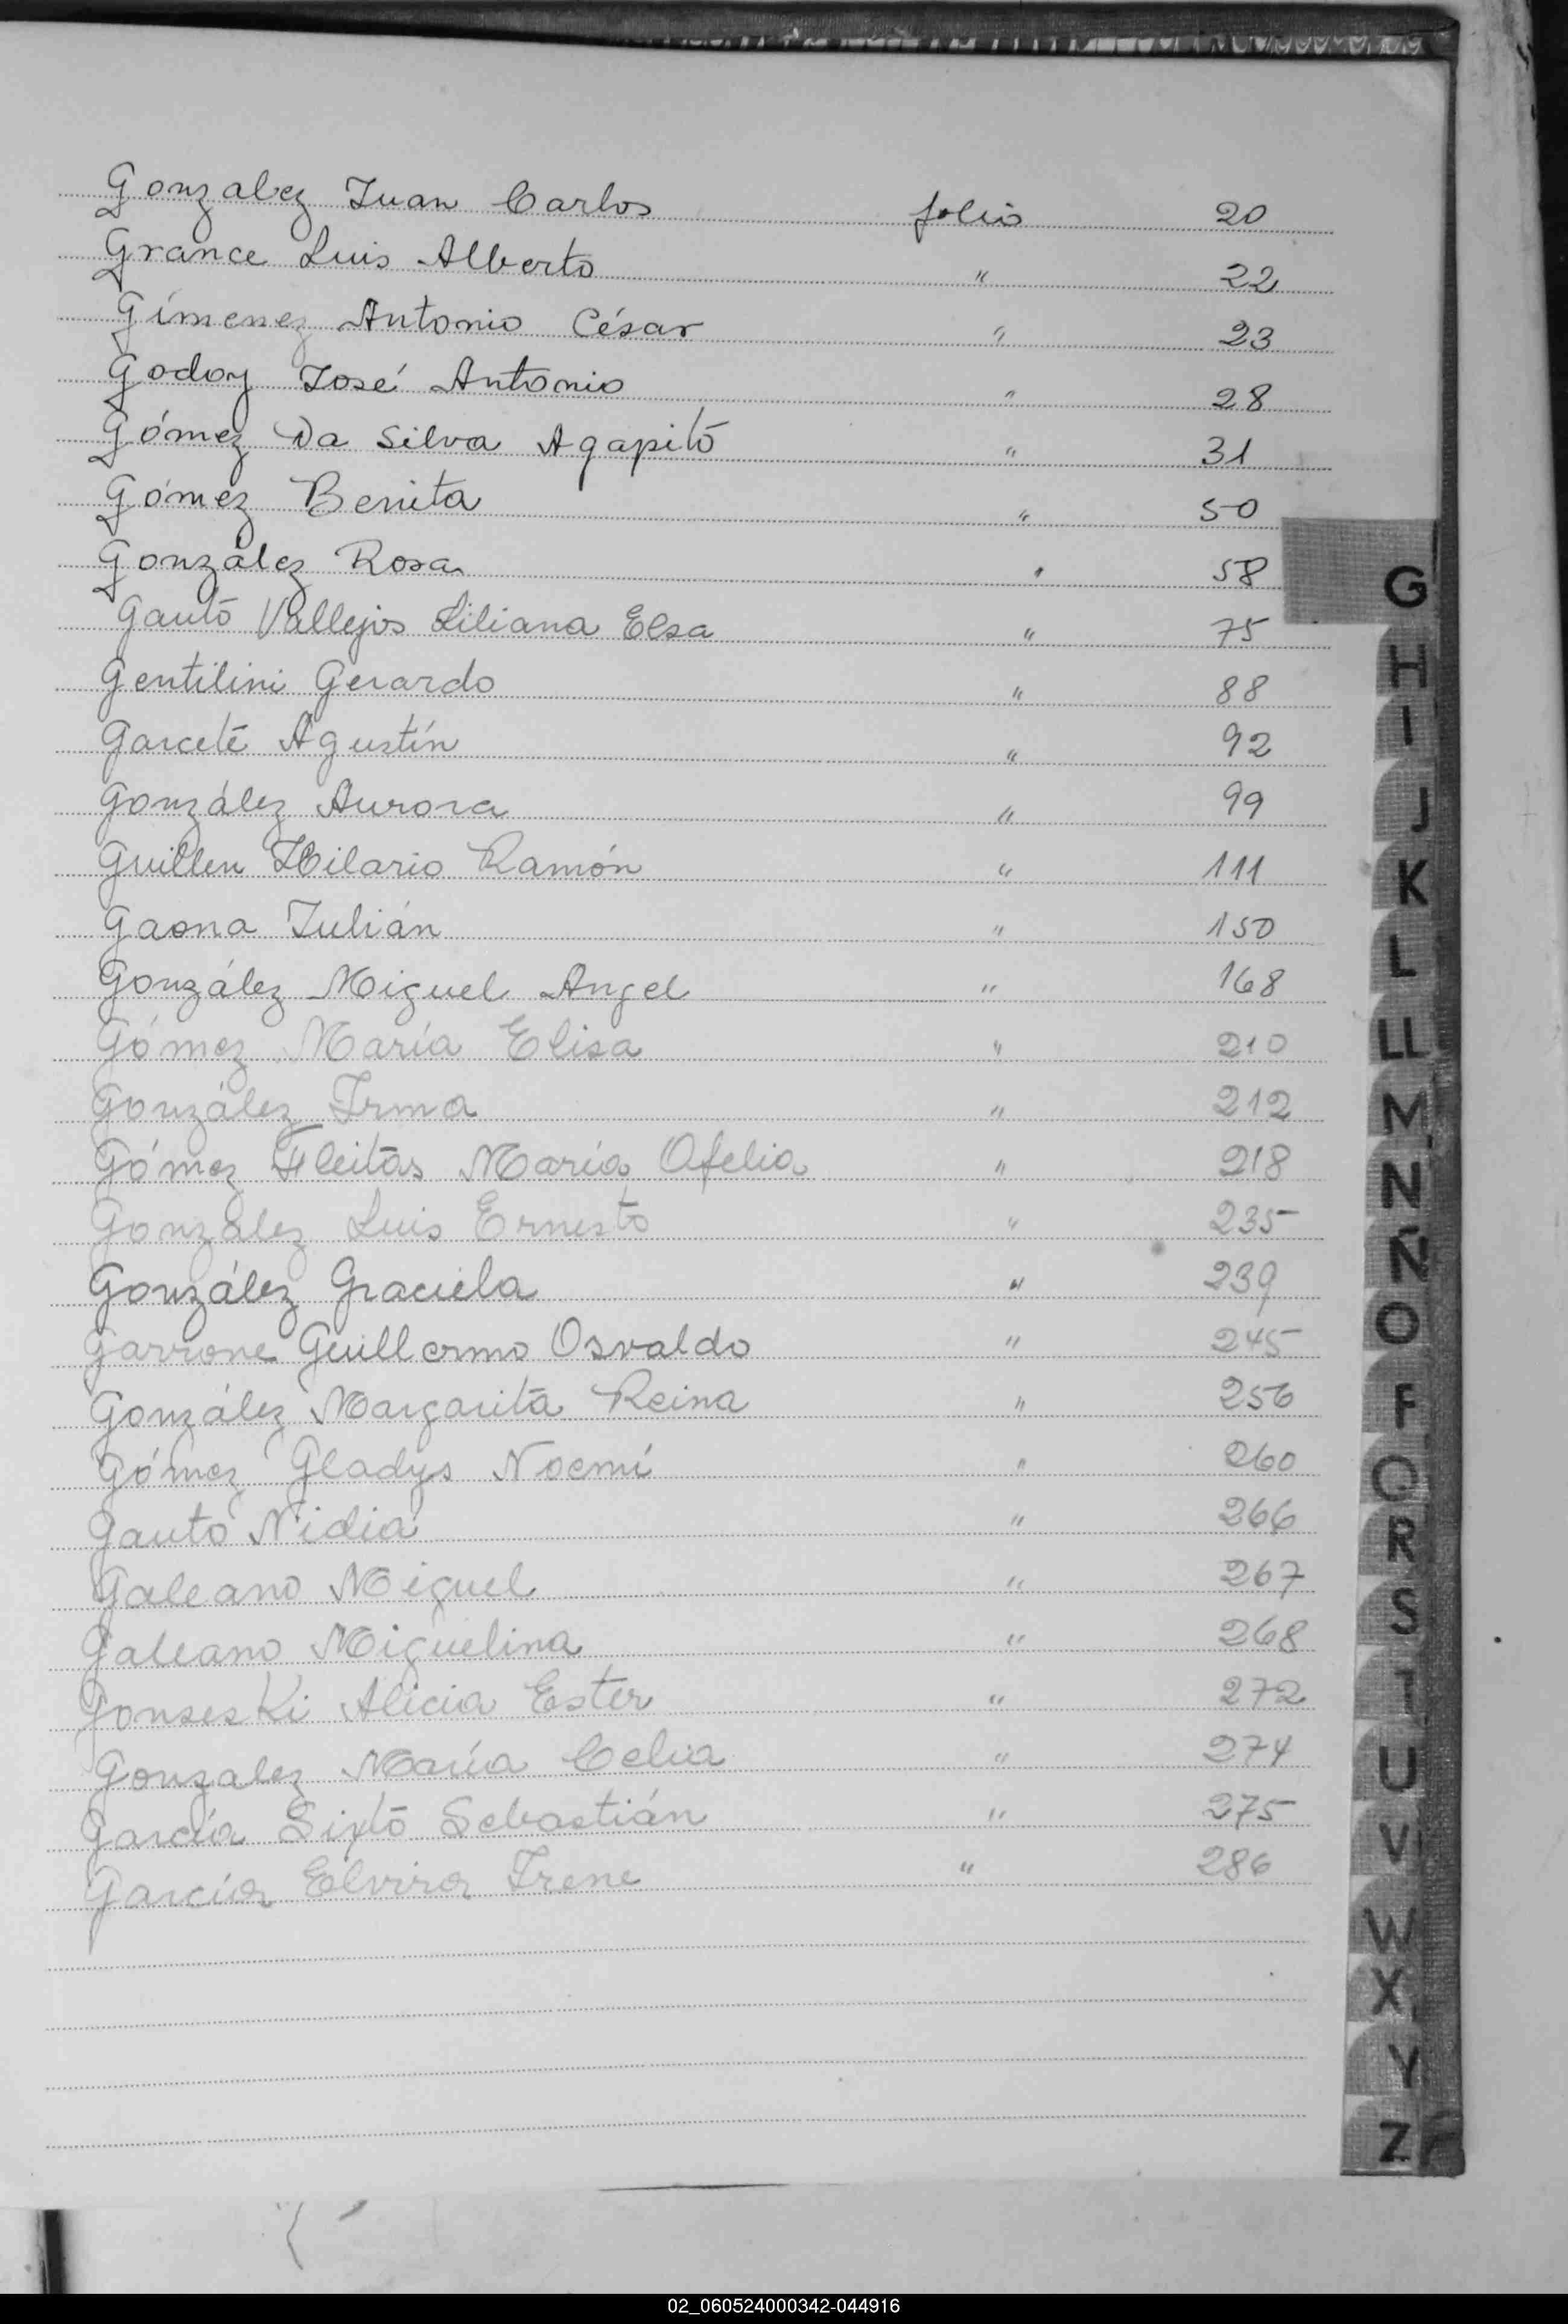 Gonzalez Juan Carlos folio 20
Grance Luis Alberto " 22
Gimenez Antonio César " 23
Godoy José Antonio " 28
Gómez Da Silva Agapito " 31
Gómez Benita " 50
González Rosa " 58
Gauto Vallejos Liliana Elsa " 75
Gentilini Gerardo " 88
Garcete Agustín " 92
González Aurora " 99
Guillen Hilario Ramón " 111
Gaona Julián " 150
González Miguel Angel " 168
Gómez María Elisa " 210
González Irma " 212
Gómez Fleitas María Ofelia " 218
González Luis Ernesto " 235
González Graciela " 239
Garrone Guillermo Osvaldo " 245
González Margarita Reina " 256
Gómez Gladys Noemí " 260
Gauto Nidia " 266
Galeano Miguel " 267
Galeano Miguelina " 268
Gonseski Alicia Ester " 272
Gonzalez María Celia " 274
García Sixto Sebastián " 275
García Elvira Irene " 286
G
H
I
J
K
L
LL
M
N
Ñ
O
P
Q
R
S
T
U
V
W
X
Y
Z
02_060524000342-044916